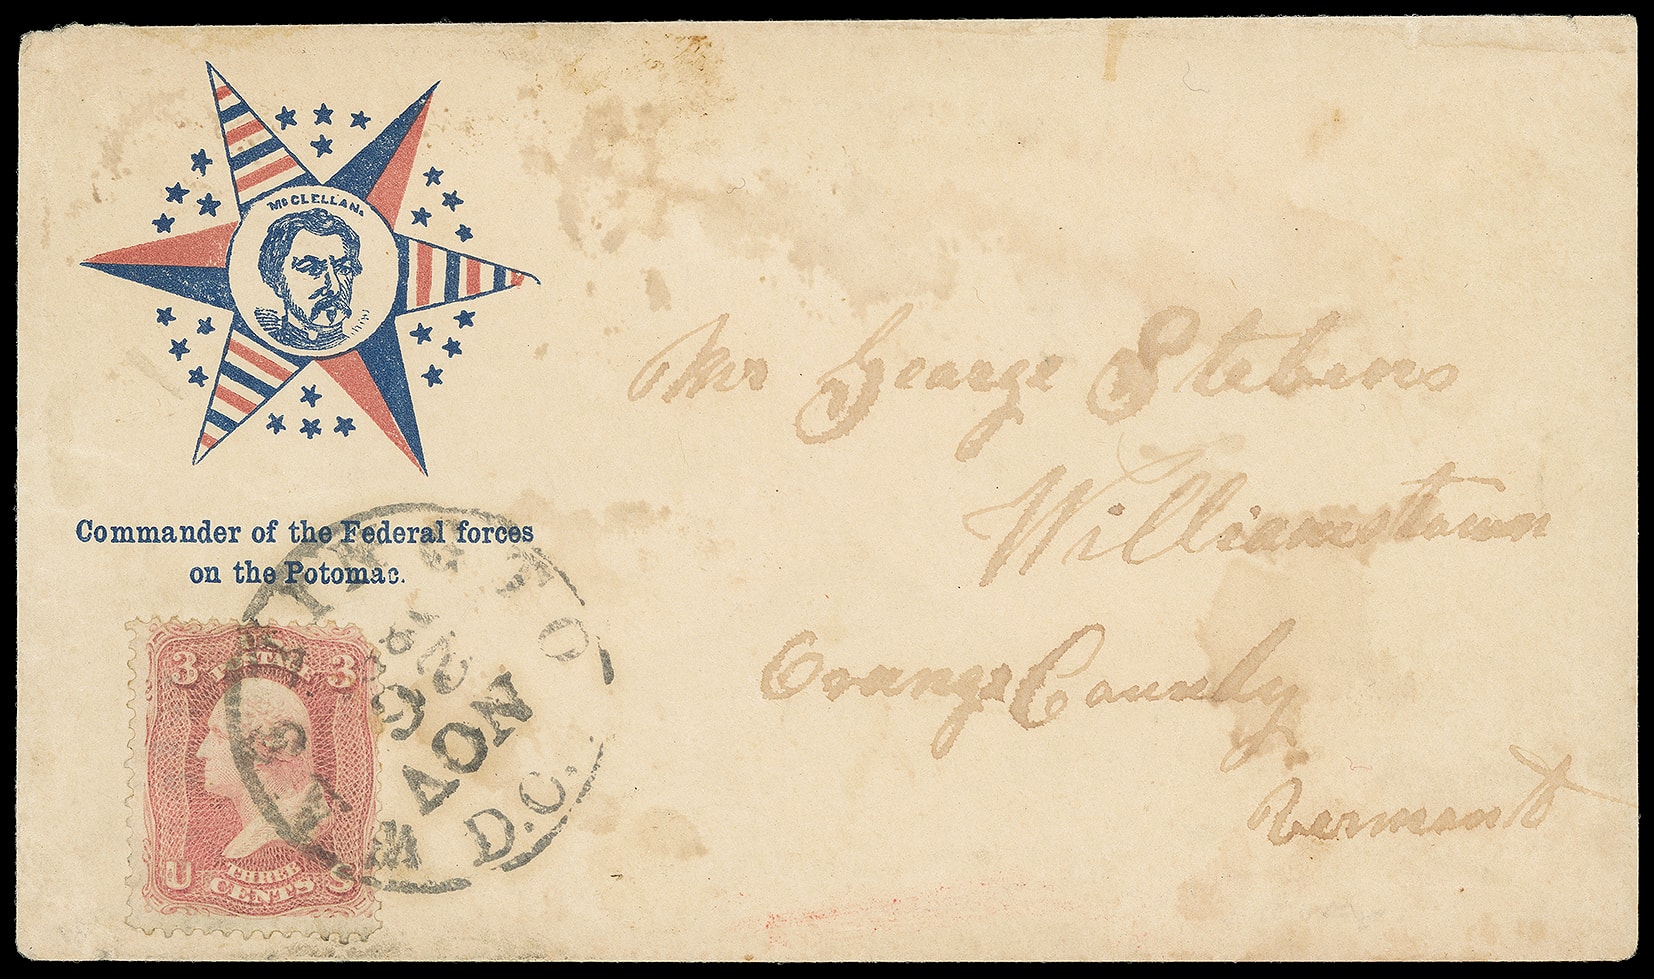 McCLELLAN.
Commander of the Federal forces
on the Potomac.
3 POSTAGE 3
U S
THREE
CENTS
WASHINGTON D.C.
NOV
Mr George Stebens
Williamstown
Orange County
Vermont